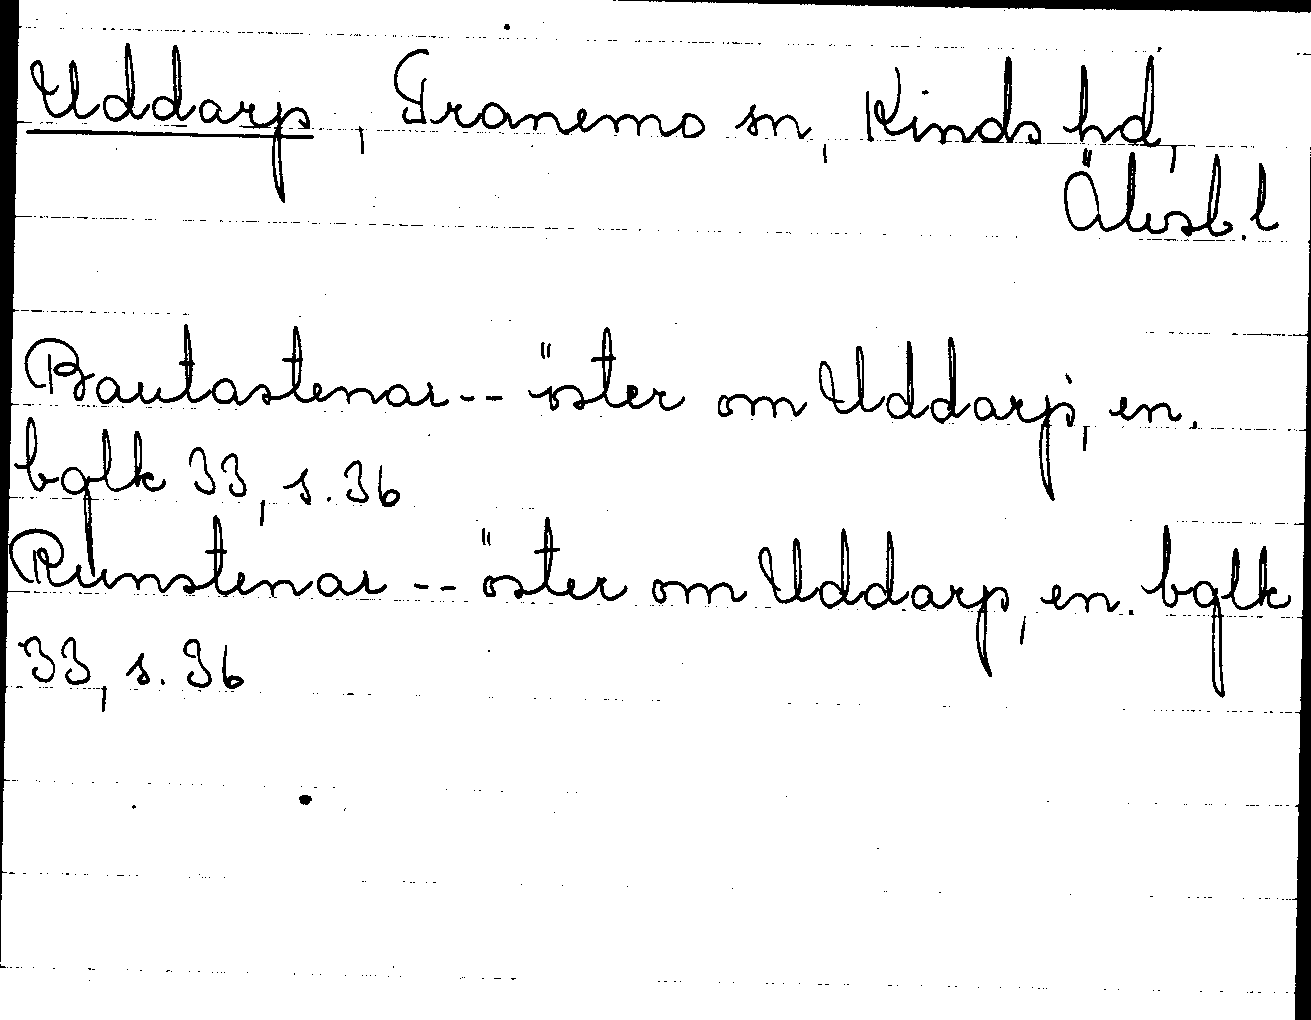 Uddarp, Tranemo sn, Kinds hd,
Älvsb. l
Bautastenar -- öster om Uddarp, en.
bglk 33, s. 36
Runstenar -- öster om Uddarp, en. bglk
33, s. 36